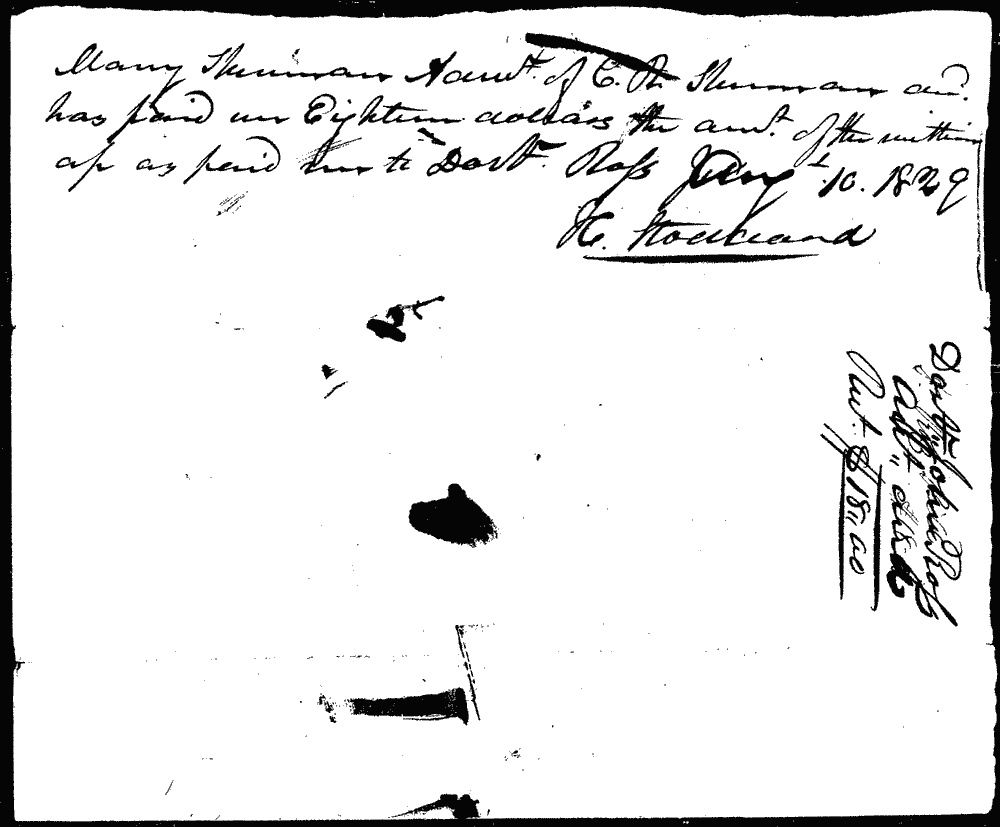 Mary Sherman Admx. of C. R. Sherman dec.
has paid me Eighteen dollars the amt. of the within
as paid me to Doctr. Ross Jany 10. 1829
H. Stoddard
Doctr. John Ross
Rect. $18,,00